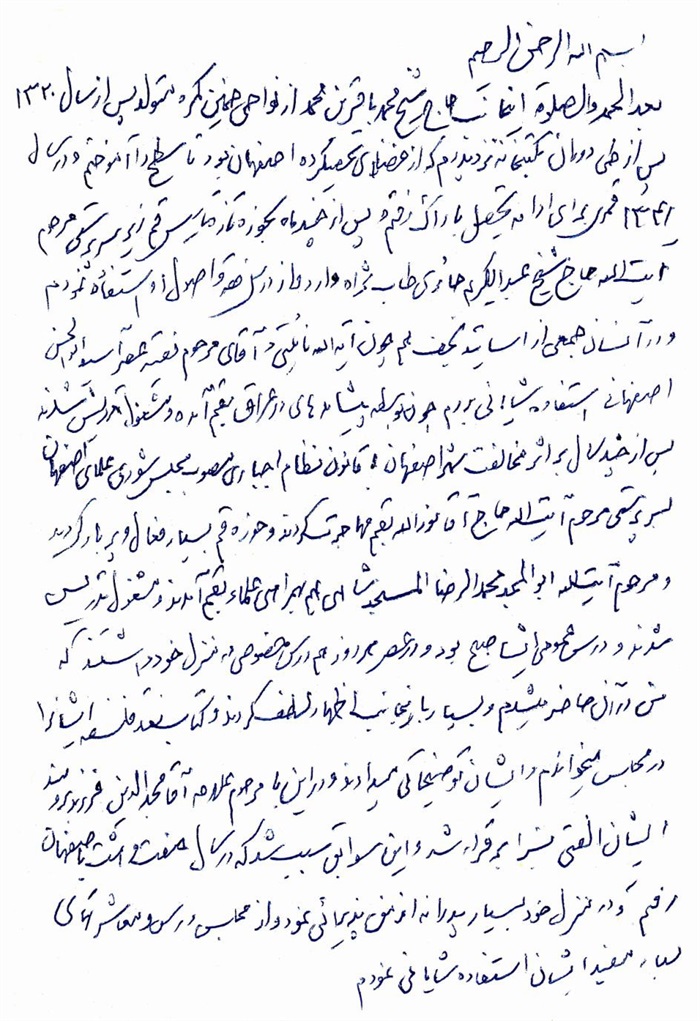 بسم الله الرحمن الرحیم
بعد الحمد والصلوة اینجانب حاج شیخ محمد باقر بن محمد از نواحی خمین کمره متولد پس از سال ۱۳۲۰
پس از طی دوران مکتبخانه نزد پدرم که از فضلای تحصیلکرده اصفهان بود تا سطح را آموختم و در سال
۱۳۴۱ قمری برای ادامه تحصیل باراک رفتم و پس از چند ماه بحوزه تازه تاسیس قم زیر سرپرستی مرحوم
آیت الله حاج شیخ عبدالکریم حائری طاب ثراه وارد و از درس فقه و اصول او استفاده نمودم
و در آنسال جمعی از اساتید نجف هم چون آیة الله نائینی و آقای مرحوم فقیه عصر آسید ابوالحسن
اصفهانی استفاده شایانی بردم چون بواسطه پیشامدهای در عراق بقم آمده و مشغول تدریس شدند
پس از چند سال بر اثر مخالفت شهر اصفهان با قانون نظام اجباری مصوب مجلس شوری علمای اصفهان
بسرپرستی مرحوم آیت الله حاج آقا نورالله بقم مهاجرت کردند و حوزه قم بسیار فعال و پر بار گردید
و مرحوم آیت الله ابوالمجد محمد الرضا المسجدشاهی هم بهمراهی علماء بقم آمدند و مشغول تدریس
شدند و درس عمومی ایشان صبح بود و در عصر هر روز هم درس خصوصی در منزل خود داشتند که
من در آن حاضر میشدم و بسیار باینجانب اظهار لطف کردند و کتاب نقد فلسفه ایشانرا
در مجلس میخواندم و ایشان توضیحاتی میدادند و در این با مرحوم علامه آقا مجدالدین فرزند برومند
ایشان الفتی بسزا برقرار شد و این سوابق سبب شد که در سال هفت و هشت باصفهان
رفتم و در منزل خود بسیار پدرانه از من پذیرائی نمود و از مجلس درس و معاشرتهای
بسیار مفید ایشان استفاده شایانی نمودم